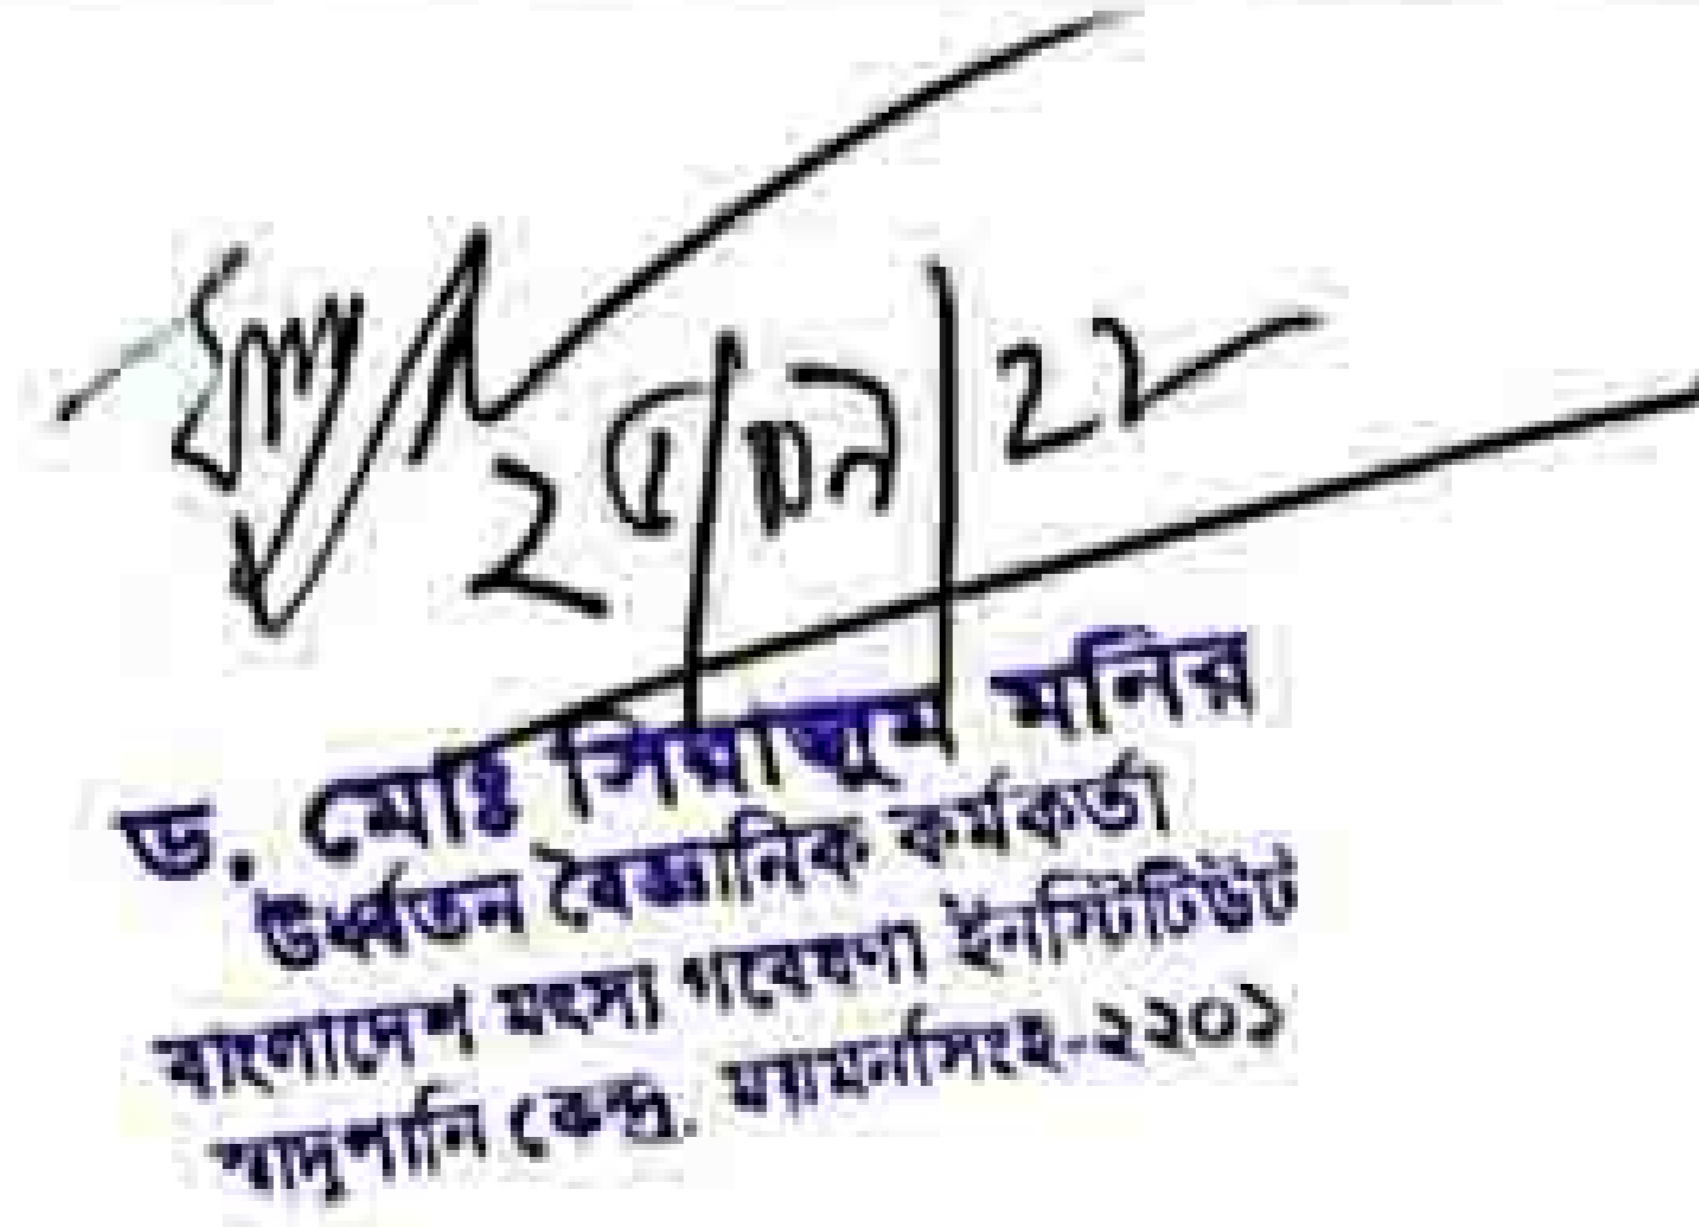 ড. মোঃ সিরাজুম মনির
উর্ধ্বতন বৈজ্ঞানিক কর্মকর্তা
বাংলাদেশ মৎস্য গবেষণা ইনস্টিটিউট
স্বাদুপানি কেন্দ্র, ময়মনসিংহ-২২০১